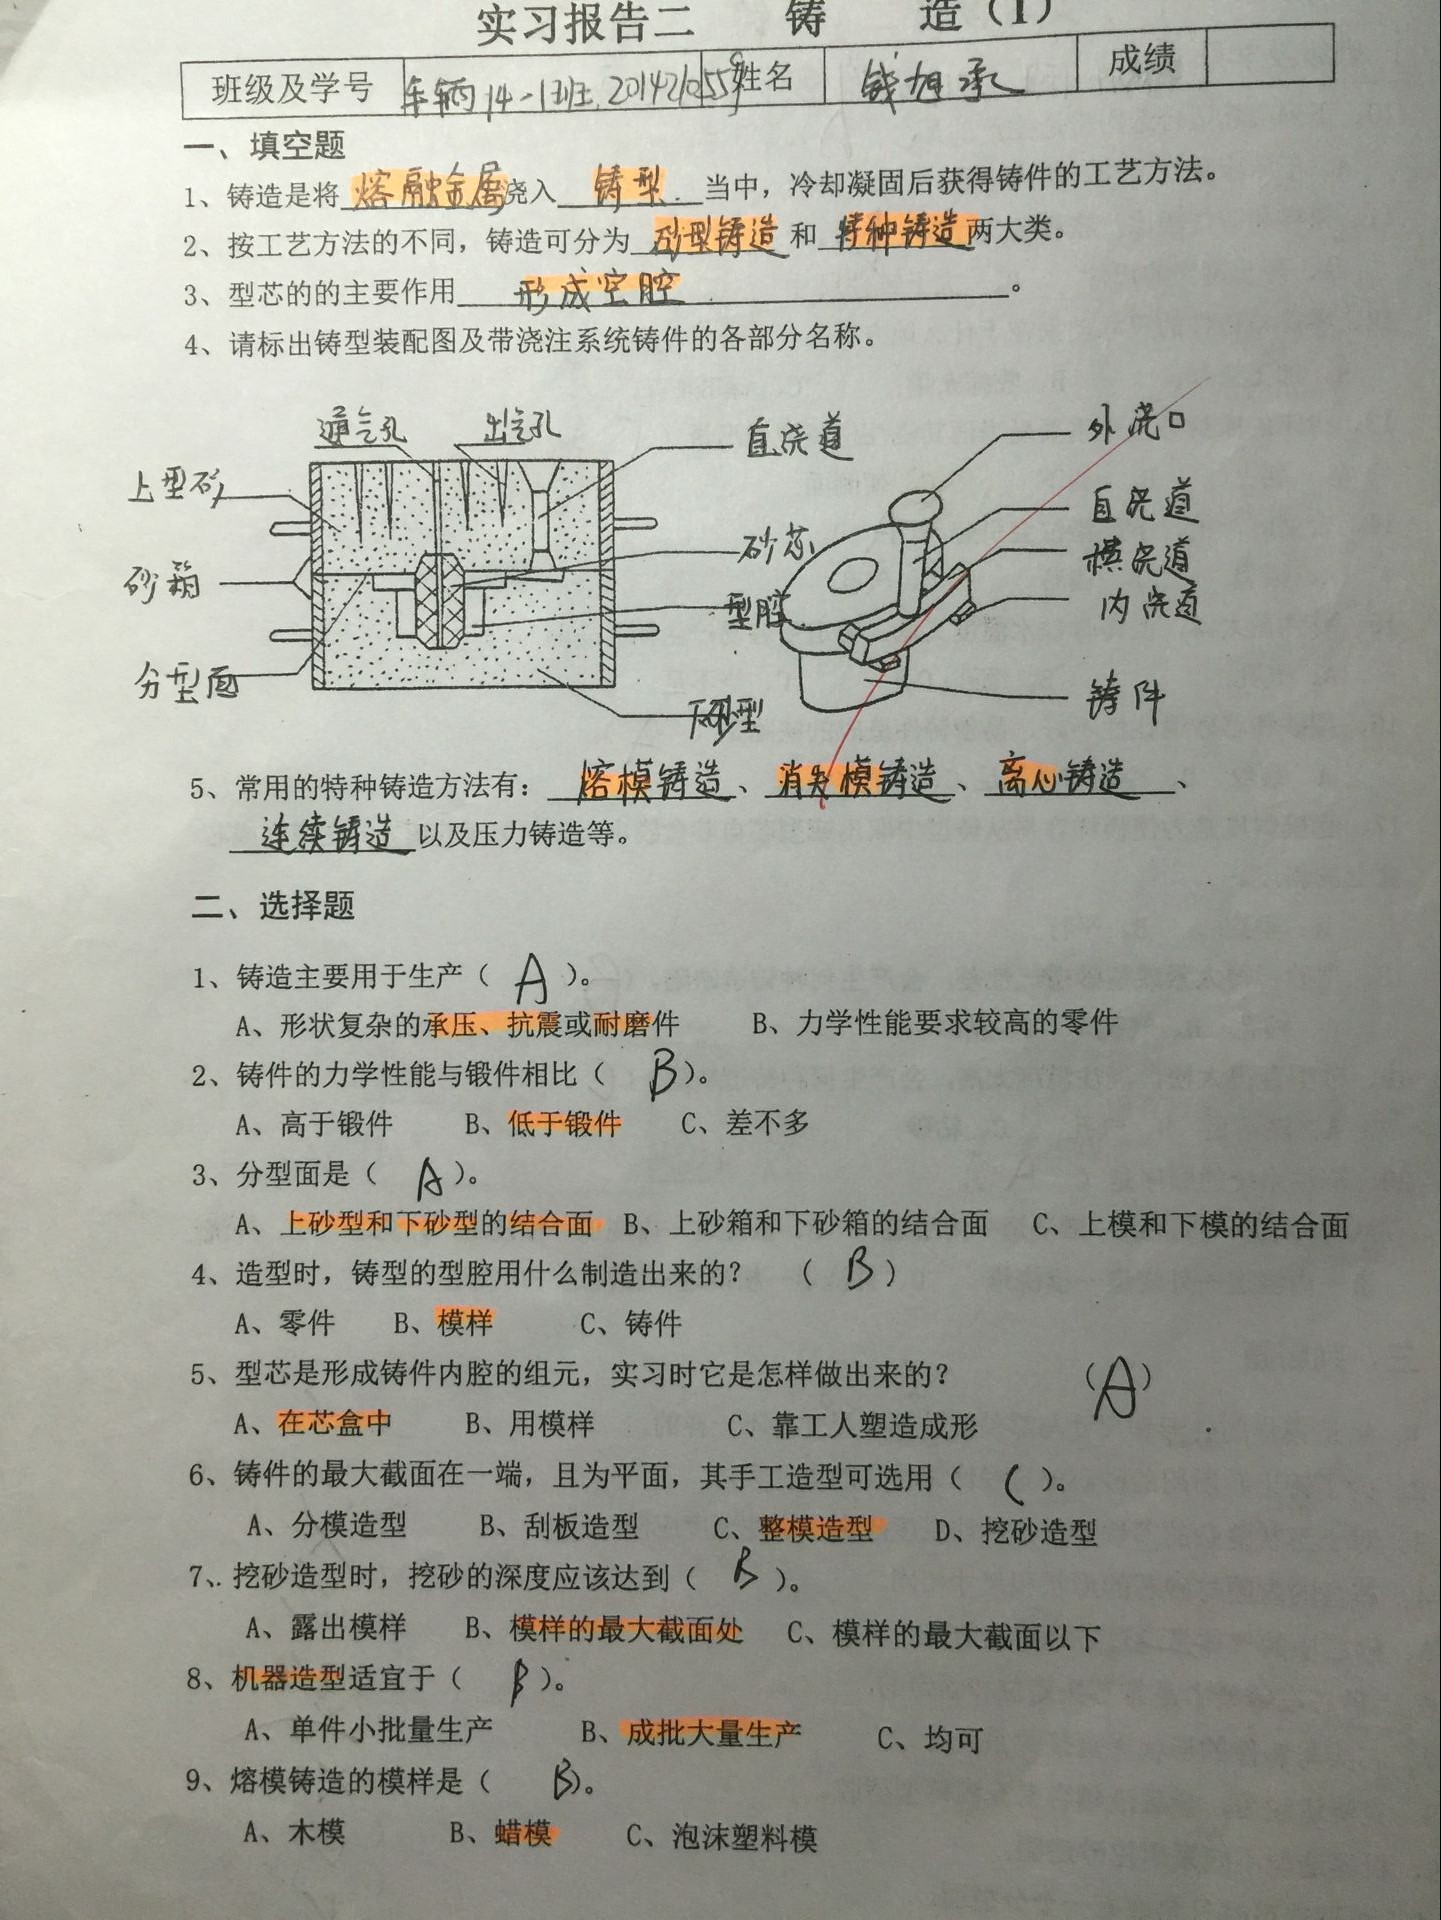 实习报告二 铸 造（I）
班级及学号 车辆14-1班 2014210559 姓名 钱旭承 成绩
一、填空题
1、铸造是将 熔融金属 浇入 铸型 当中，冷却凝固后获得铸件的工艺方法。
2、按工艺方法的不同，铸造可分为 砂型铸造 和 特种铸造 两大类。
3、型芯的的主要作用 形成空腔 。
4、请标出铸型装配图及带浇注系统铸件的各部分名称。
通气孔 出气孔 直浇道 外浇口
上型砂 直浇道
砂箱 砂芯 横浇道
型腔 内浇道
分型面 下砂型 铸件
5、常用的特种铸造方法有： 熔模铸造 、 消失模铸造 、 离心铸造 、
连续铸造 以及压力铸造等。
二、选择题
1、铸造主要用于生产（ A ）。
A、形状复杂的承压、抗震或耐磨件 B、力学性能要求较高的零件
2、铸件的力学性能与锻件相比（ B ）。
A、高于锻件 B、低于锻件 C、差不多
3、分型面是（ A ）。
A、上砂型和下砂型的结合面 B、上砂箱和下砂箱的结合面 C、上模和下模的结合面
4、造型时，铸型的型腔用什么制造出来的？ （ B ）
A、零件 B、模样 C、铸件
5、型芯是形成铸件内腔的组元，实习时它是怎样做出来的？ （A）
A、在芯盒中 B、用模样 C、靠工人塑造成形
6、铸件的最大截面在一端，且为平面，其手工造型可选用（ C ）。
A、分模造型 B、刮板造型 C、整模造型 D、挖砂造型
7、挖砂造型时，挖砂的深度应该达到（ B ）。
A、露出模样 B、模样的最大截面处 C、模样的最大截面以下
8、机器造型适宜于（ B ）。
A、单件小批量生产 B、成批大量生产 C、均可
9、熔模铸造的模样是（ B ）。
A、木模 B、蜡模 C、泡沫塑料模